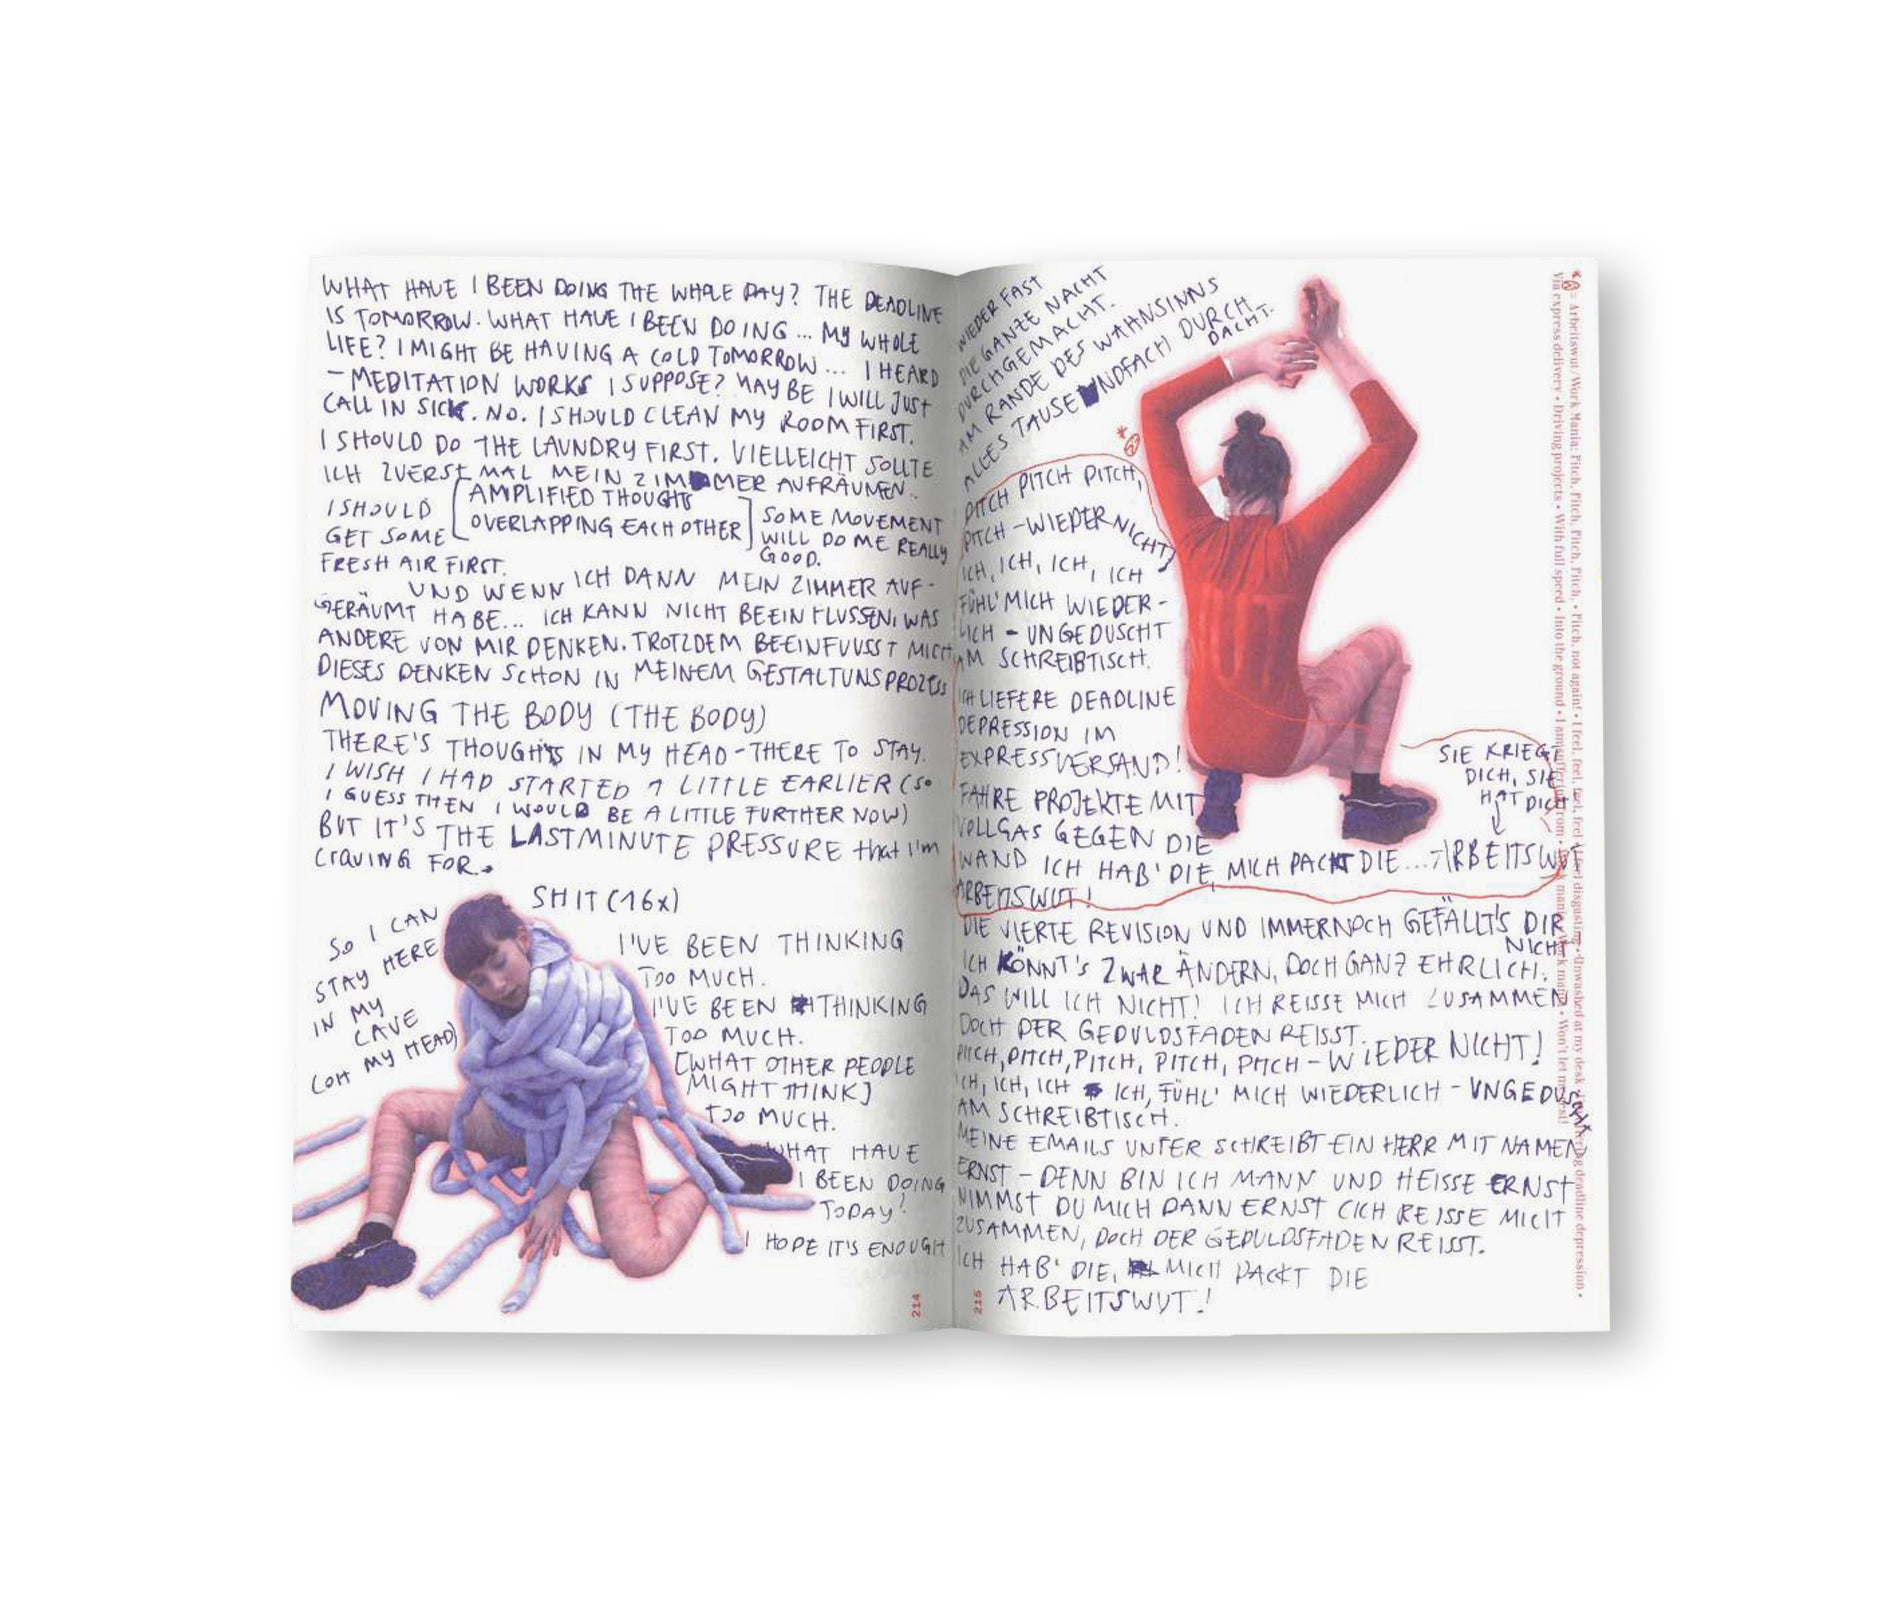 WHAT HAVE I BEEN DOING THE WHOLE DAY? THE DEADLINE
IS TOMORROW. WHAT HAVE I BEEN DOING ... MY WHOLE
LIFE? I MIGHT BE HAVING A COLD TOMORROW ... I HEARD
– MEDITATION WORKS I SUPPOSE? MAYBE I WILL JUST
CALL IN SICK. NO. I SHOULD CLEAN MY ROOM FIRST.
I SHOULD DO THE LAUNDRY FIRST. VIELLEICHT SOLLTE
ICH ZUERST MAL MEIN ZIMMER AUFRÄUMEN.
I SHOULD [AMPLIFIED THOUGHTS
GET SOME OVERLAPPING EACH OTHER] SOME MOVEMENT
WILL DO ME REALLY
GOOD.
FRESH AIR FIRST.
UND WENN ICH DANN MEIN ZIMMER AUF-
GERÄUMT HABE... ICH KANN NICHT BEEINFLUSSEN, WAS
ANDERE VON MIR DENKEN. TROTZDEM BEEINFUUSST MICH
DIESES DENKEN SCHON IN MEINEM GESTALTUNSPROZESS
MOVING THE BODY (THE BODY)
THERE'S THOUGHTS IN MY HEAD - THERE TO STAY.
I WISH I HAD STARTED A LITTLE EARLIER (SO
I GUESS THEN I WOULD BE A LITTLE FURTHER NOW)
BUT IT'S THE LASTMINUTE PRESSURE that I'm
CRAVING FOR.
SHIT (16x)
SO I CAN
STAY HERE
IN MY
CAVE
(OH MY HEAD)
I'VE BEEN THINKING
TOO MUCH.
I'VE BEEN THINKING
TOO MUCH.
[WHAT OTHER PEOPLE
MIGHT THINK]
TOO MUCH.
WHAT HAVE
I BEEN DOING
TODAY?
I HOPE IT'S ENOUGH
214
WIEDER FAST
DIE GANZE NACHT
DURCHGEMACHT.
AM RANDE DES WAHNSINNS
ALLES TAUSENDFACH DURCH
DACHT.
PITCH PITCH PITCH,
PITCH - WIEDER NICHT)
ICH, ICH, ICH, ICH
FÜHL' MICH WIEDER-
LICH - UNGEDUSCHT
AM SCHREIBTISCH.
ICH LIEFERE DEADLINE
DEPRESSION IM
EXPRESSVERSAND!
FAHRE PROJEKTE MIT
VOLLGAS GEGEN DIE
WAND ICH HAB' DIE, MICH PACKT DIE ... ARBEITSWUT
ARBEITSWUT!
SIE KRIEGT
DICH, SIE
HAT DICH
DIE VIERTE REVISION UND IMMERNOCH GEFÄLLT'S DIR
NICHT
ICH KÖNNT'S ZWAR ÄNDERN, DOCH GANZ EHRLICH:
DAS WILL ICH NICHT! ICH REISSE MICH ZUSAMMEN
DOCH DER GEDULDSFADEN REISST.
PITCH, PITCH, PITCH, PITCH, PITCH - WIEDER NICHT!
ICH, ICH, ICH ICH, FÜHL' MICH WIEDERLICH - UNGEDUSCHT
AM SCHREIBTISCH.
MEINE EMAILS UNTERSCHREIBT EIN HERR MIT NAMEN
ERNST - DENN BIN ICH MANN UND HEISSE ERNST
NIMMST DU MICH DANN ERNST ICH REISSE MICH
ZUSAMMEN, DOCH DER GEDULDSFADEN REISST.
ICH HAB' DIE, MICH PACKT DIE
ARBEITSWUT!
215
= Arbeitswut/Work Mania: Pitch, Pitch, Pitch, Pitch, Pitch, • Pitch, not again! • I feel, feel, feel, feel, feel I feel disgusting • Unwashed at my desk • I'm delivering deadline depression •
via express delivery • Driving projects • With full speed • Into the ground • I am suffering from • Work mania, Work mania • Won't let me rest!